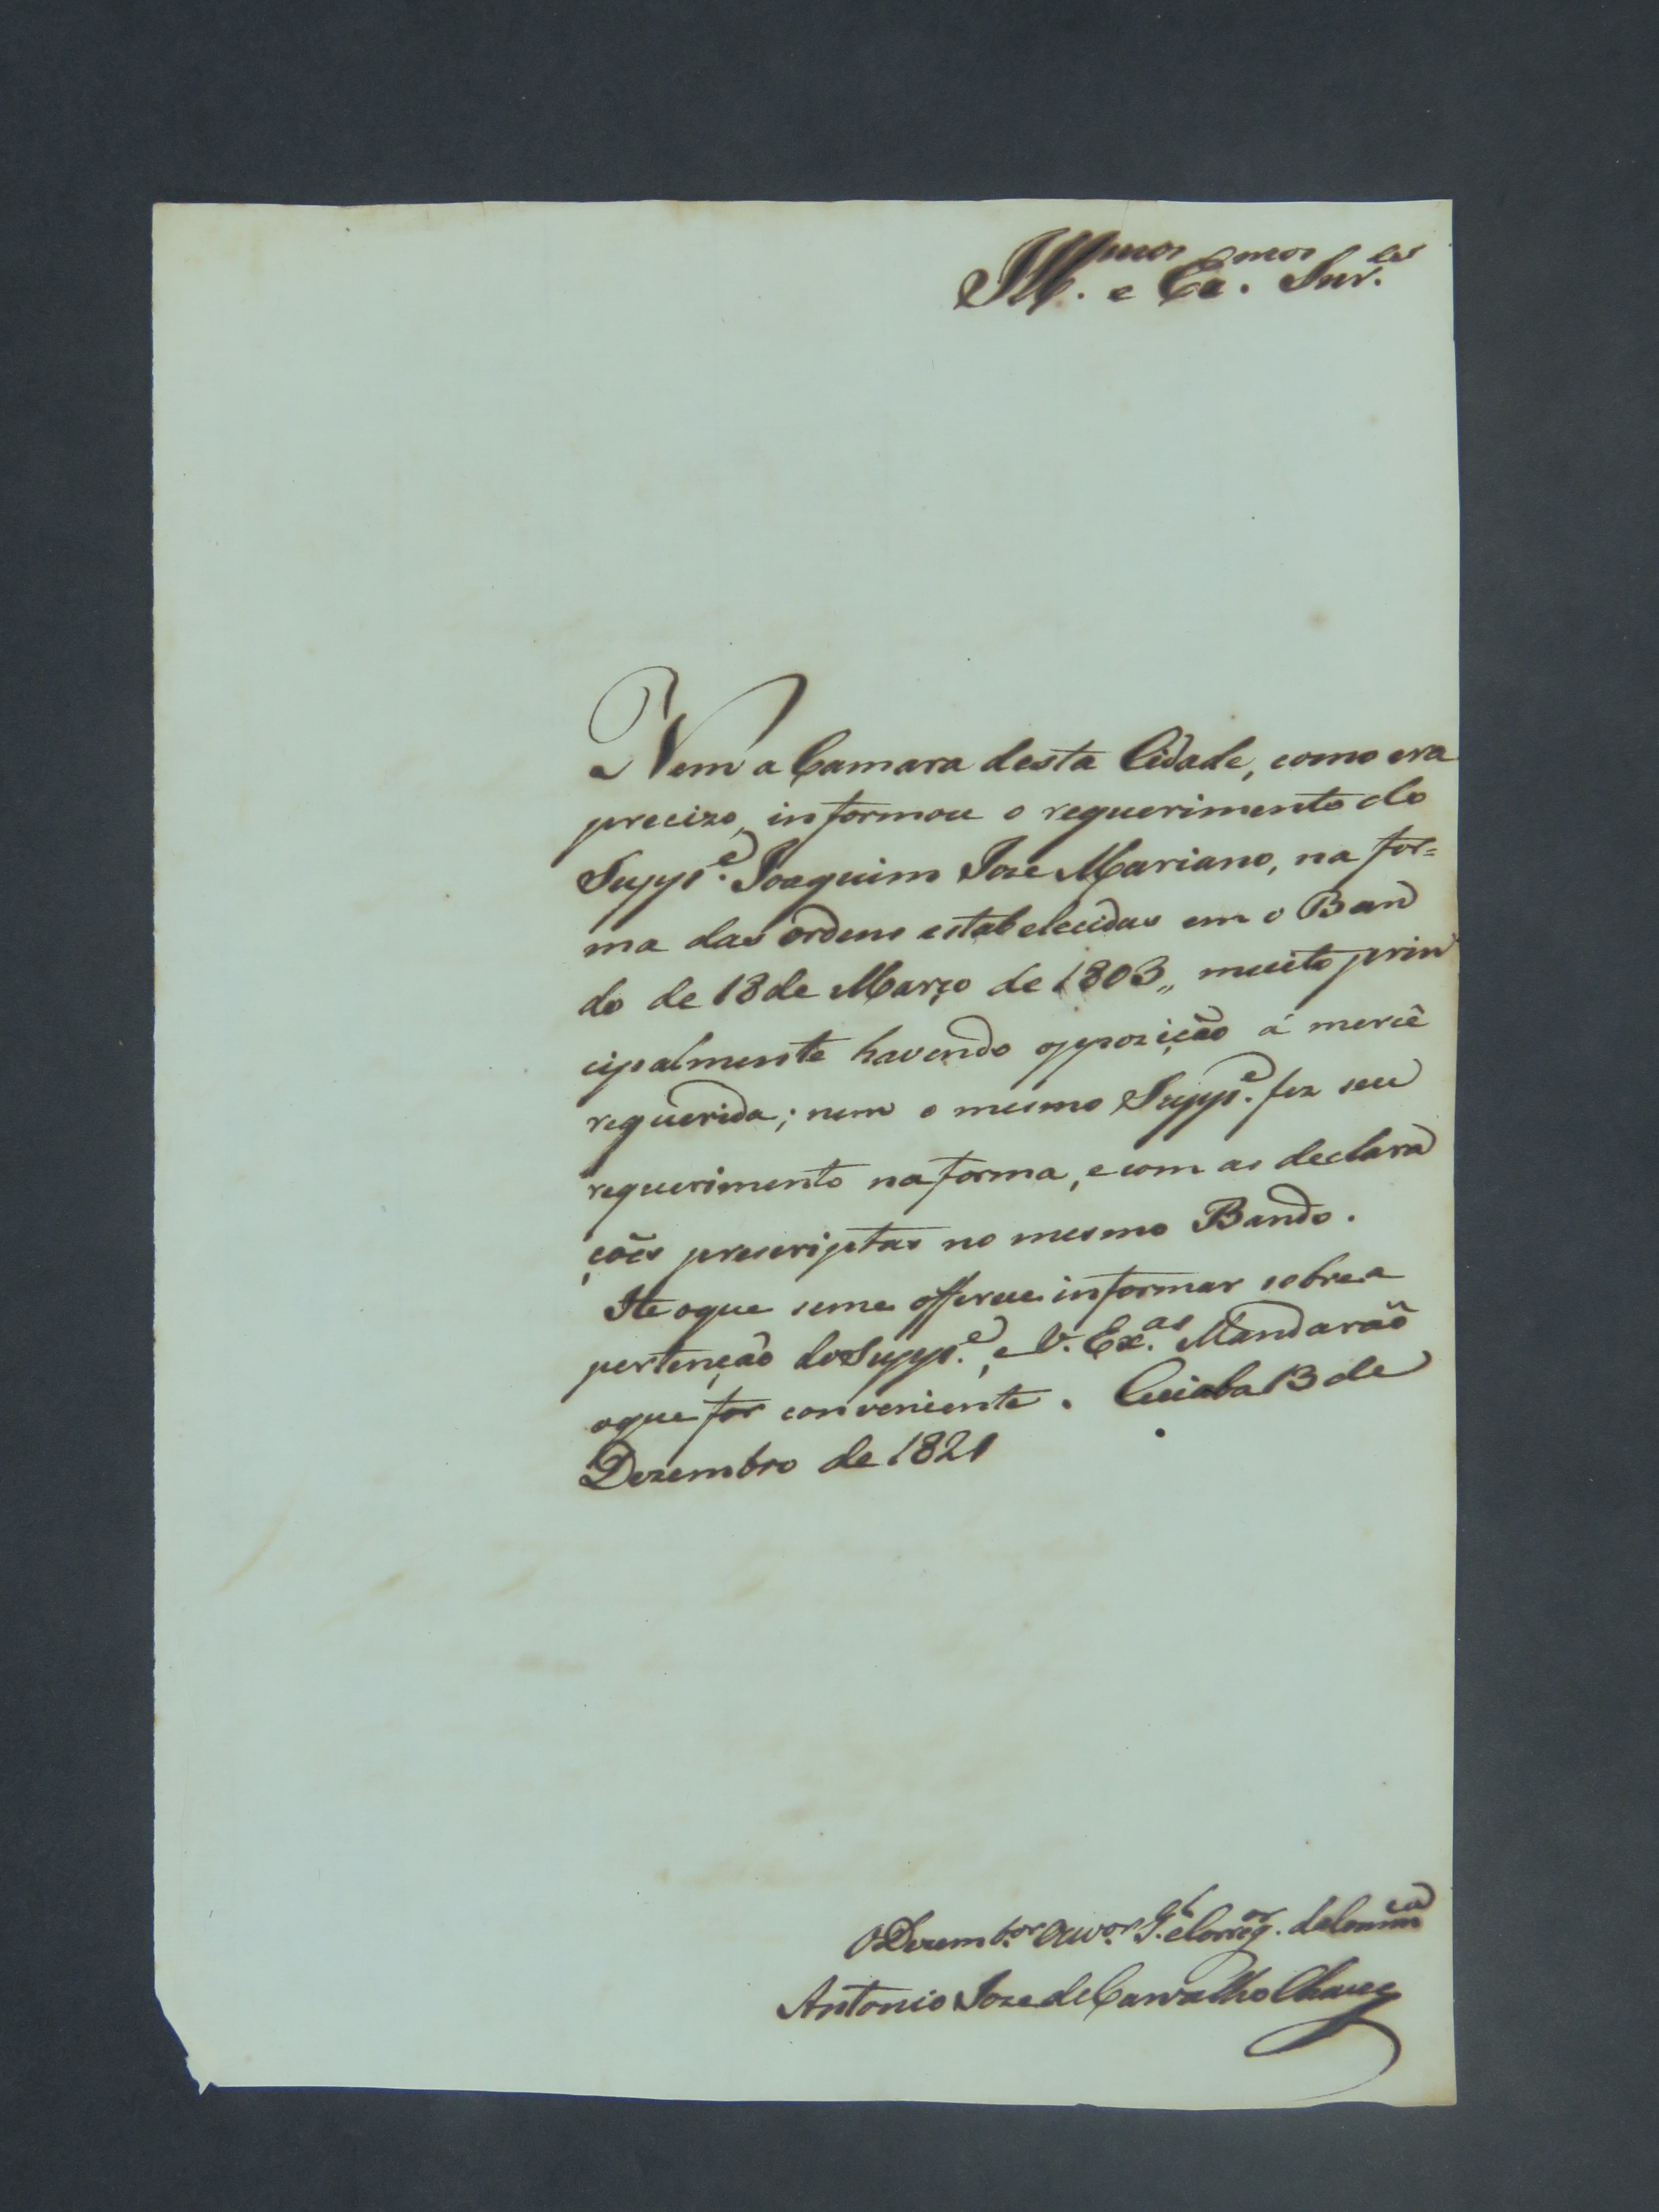 Ill.mos e Ex.mos Snr.es
Nem a Camara desta Cidade, como era
precizo, informou o requerimento do
Supp.e Joaquim Joze Mariano, na for=
ma das ordens estabelecidas em o Ban
do de 18 de Março de 1803,, muito prin
cipalmente havendo oppozição á mercê
requerida; nem o mesmo Supp.e fez seu
requerimento na forma, e com as declara
ções prescriptas no mesmo Bando.
He oque seme offerece informar sobre a
pertenção do Supp.e, e V. Ex.as Mandarão
oque for conveniente. Cuiaba 13 de
Dezembro de 1821
O Dezemb.or Ouv.or G.l e Correg.or da Comm.ca
Antonio Joze de Carvalho Chaves